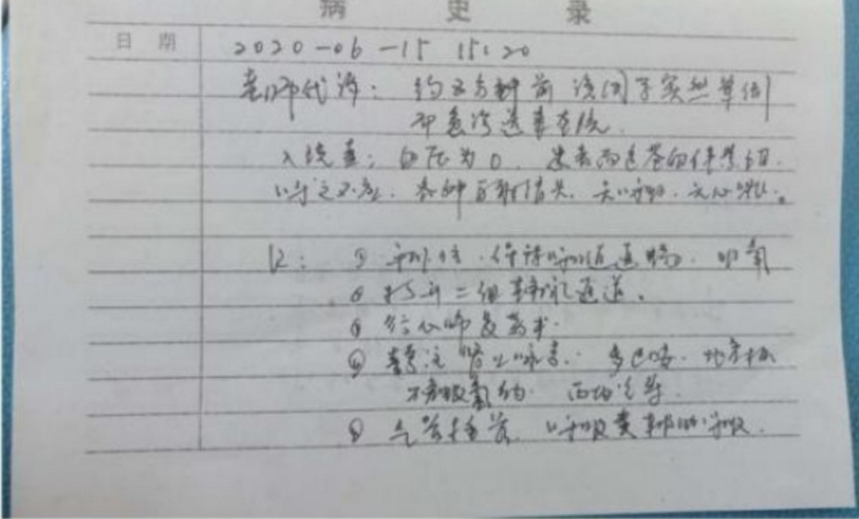 病 史 录
日 期 2020-06-15 15:20
老师代诉：约五分钟前该同学突然晕倒
即急诊送来本院
入院查：血压为0，患者面色苍白
呼之不应，各种反射消失，无呼吸，无心跳。
R：① 平卧位，保持呼吸道通畅，吸氧
② 打开二组静脉通道。
③ 给心肺复苏术
④ 静注 肾上腺素，多巴胺，地塞松
碳酸氢钠
⑤ 气管插管，呼吸囊辅助呼吸。